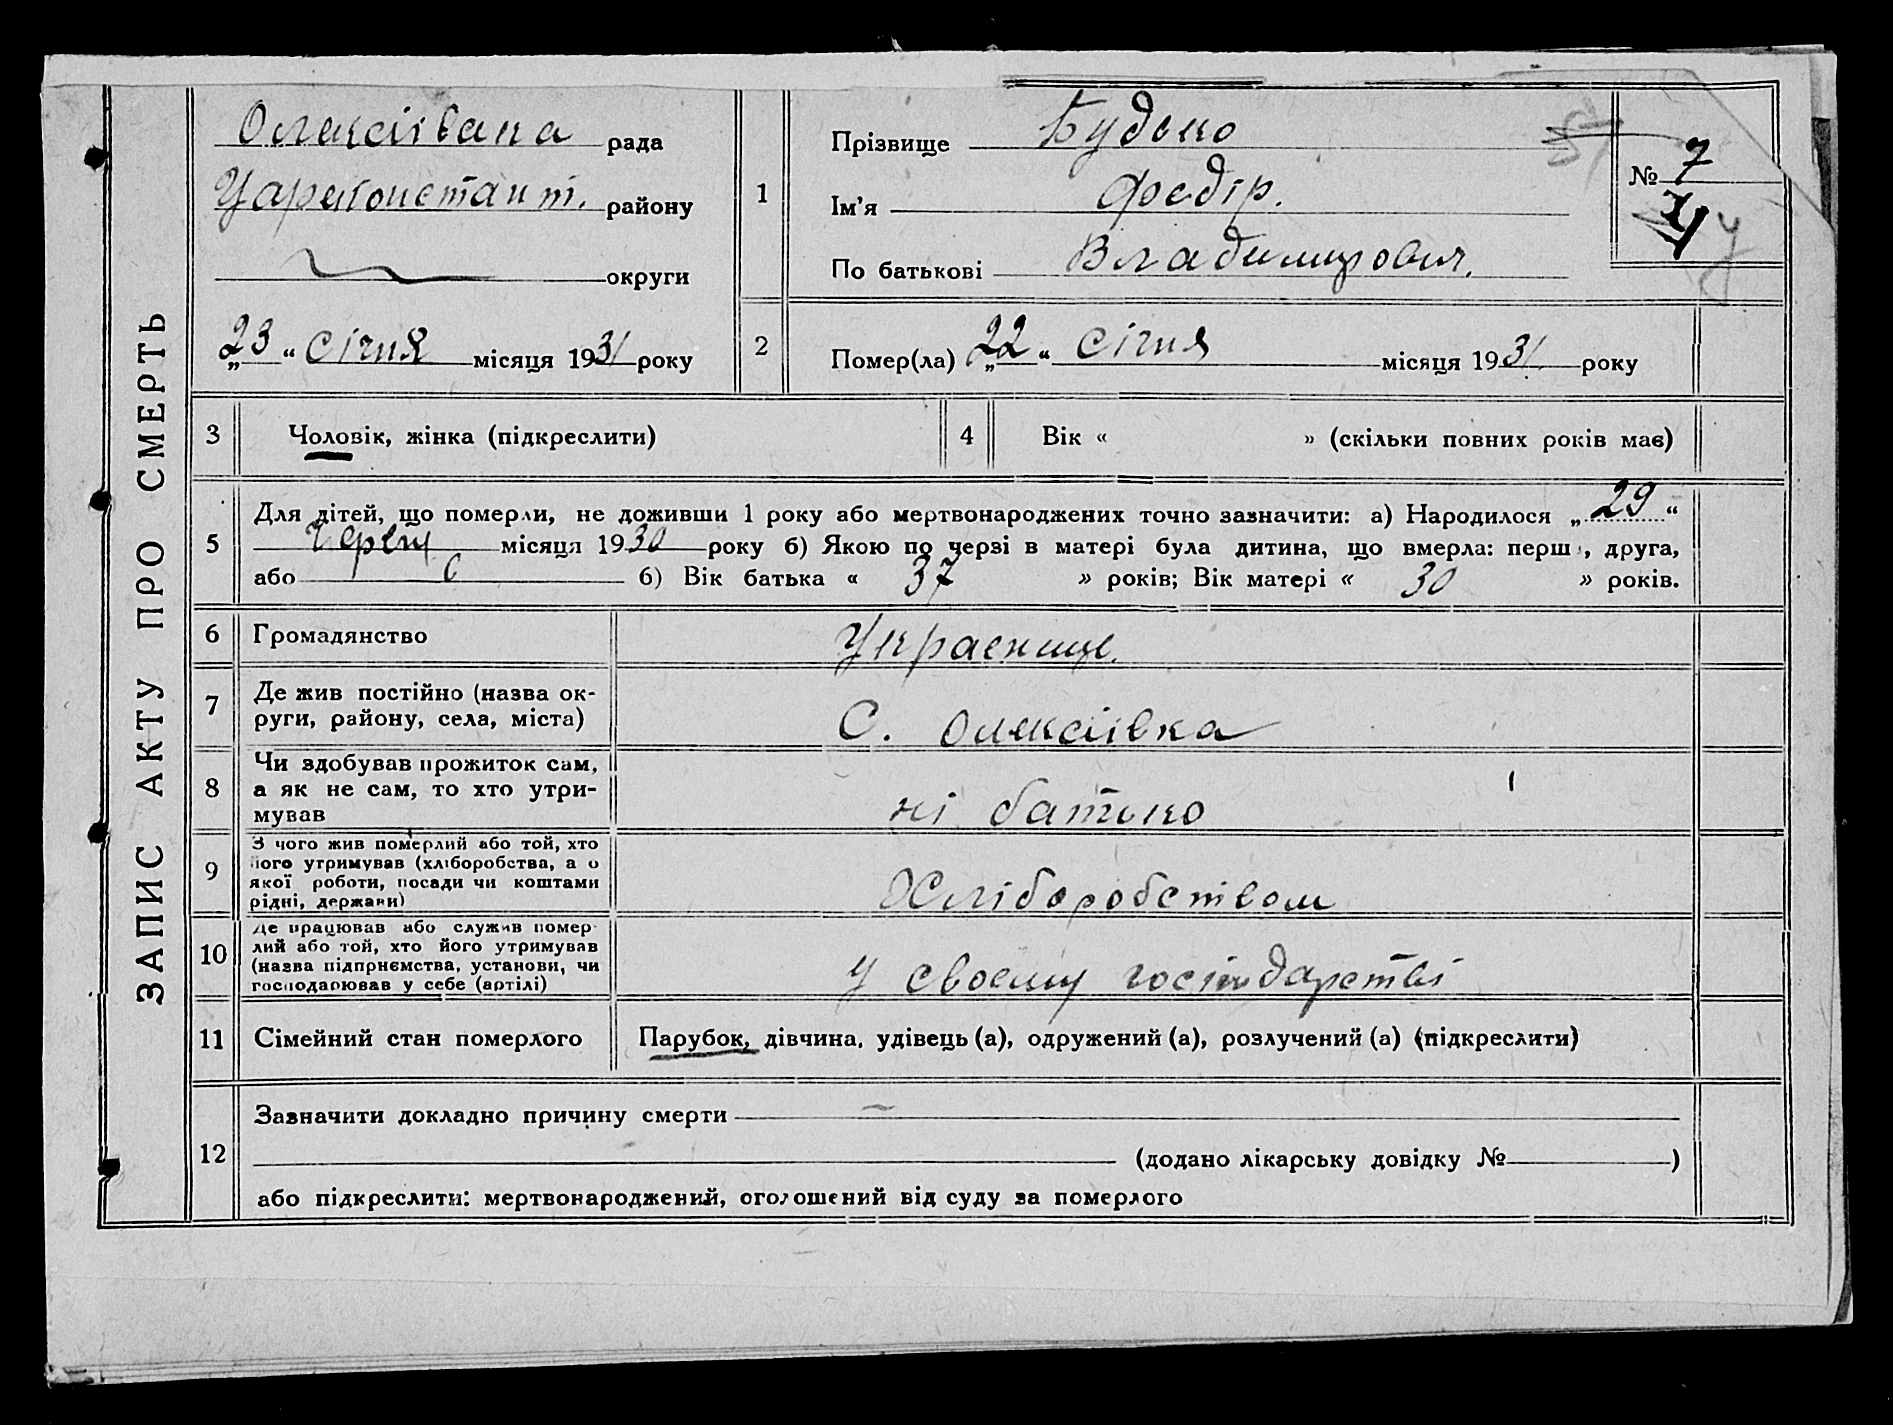 ЗАПИС АКТУ ПРО СМЕРТЬ
Олексіївська рада
Царекостант. району
округи
„23“ січня місяця 1931 року
1
Прізвище Будько
Ім’я Федір.
По батькові Владимирович.
№ 7
2
Помер(ла) „22“ січня місяця 1931 року
3 Чоловік, жінка (підкреслити)
4 Вік « » (скільки повних років має)
5
Для дітей, що померли, не доживши 1 року або мертвонароджених точно зазначити: а) Народилося „29“
Червц місяця 1930 року б) Якою по черзі в матері була дитина, що вмерла: перш , друга,
або 6 б) Вік батька « 37 » років; Вік матері « 30 » років.
6 Громадянство
7
Де жив постійно (назва ок-
руги, району, села, міста)
С. Олексіївка
8
Чи здобував прожиток сам,
а як не сам, то хто утри-
мував
ні батько
9
З чого жив померлий або той, хто
його утримував (хліборобства, а о
якої роботи, посади чи коштами
рідні, держави)
Хліборобством
10
Де працював або служив помер-
лий або той, хто його утримував
(назва підприємства, установи, чи
господарював у себе (артілі)
у своєму господарстві
11 Сімейний стан померлого
Парубок, дівчина, удівець (а), одружений (а), розлучений (а) (підкреслити)
12
Зазначити докладно причину смерти
(додано лікарську довідку № )
або підкреслити: мертвонароджений, оголошений від суду за померлого